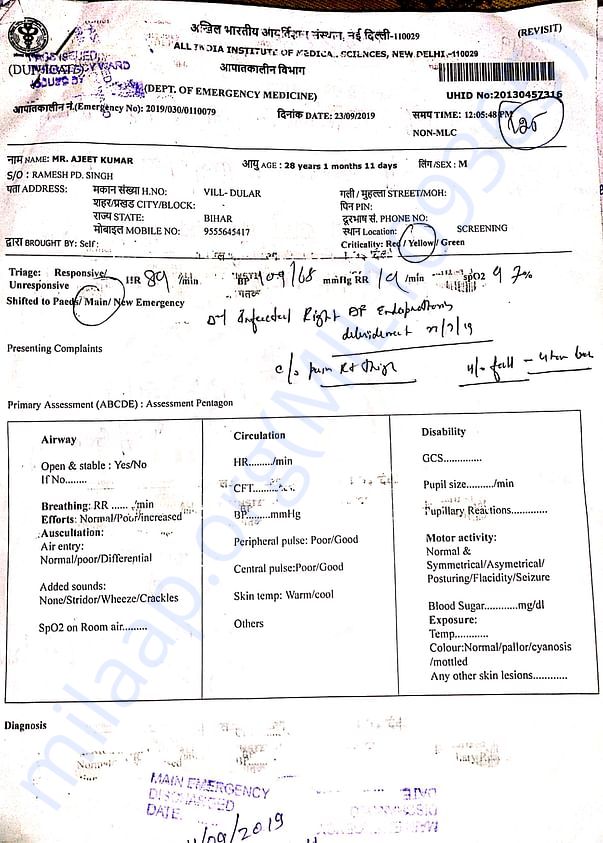 अखिल भारतीय आयुर्विज्ञान संस्थान, नई दिल्ली-110029
(REVISIT)
ALL INDIA INSTITUTE OF MEDICAL SCIENCES, NEW DELHI-110029
आपातकालीन विभाग
(DUPLICATE)
(DEPT. OF EMERGENCY MEDICINE)
UHID No:20130457316
आपातकालीन नं.(Emergency No): 2019/030/0110079
दिनांक DATE: 23/09/2019
समय TIME: 12:05:48 PM
NON-MLC
नाम NAME: MR. AJEET KUMAR
आयु AGE : 28 years 1 months 11 days
लिंग /SEX : M
S/O : RAMESH PD. SINGH
पता ADDRESS:
मकान संख्या H.NO:
VILL- DULAR
गली / मुहल्ला STREET/MOH:
शहर/प्रखंड CITY/BLOCK:
पिन PIN:
राज्य STATE:
BIHAR
दूरभाष सं. PHONE NO:
मोबाइल MOBILE NO:
9555645417
स्थान Location:
SCREENING
द्वारा BROUGHT BY: Self:
Criticality: Red / Yellow / Green
Triage: Responsive/
Unresponsive
HR 89 /min
BP 109/68 mmHg RR 19 /min
spO2 97%
Shifted to Paeds/ Main/ New Emergency
Infected Right DF Endoprosthesis
debridement
Presenting Complaints
c/o pain Rt thigh
H/o fall
Primary Assessment (ABCDE) : Assessment Pentagon
Airway
Open & stable : Yes/No
If No.......
Breathing: RR ...... /min
Efforts: Normal/Poor/increased
Auscultation:
Air entry:
Normal/poor/Differential
Added sounds:
None/Stridor/Wheeze/Crackles
SpO2 on Room air.........
Circulation
HR........./min
CFT.........
BP.........mmHg
Peripheral pulse: Poor/Good
Central pulse:Poor/Good
Skin temp: Warm/cool
Others
Disability
GCS..............
Pupil size........../min
Pupillary Reactions.............
Motor activity:
Normal &
Symmetrical/Asymetrical/
Posturing/Flacidity/Seizure
Blood Sugar............mg/dl
Exposure:
Temp............
Colour:Normal/pallor/cyanosis
/mottled
Any other skin lesions............
Diagnosis
MAIN EMERGENCY
DISCHARGED
DATE
/09/2019
milaap.org